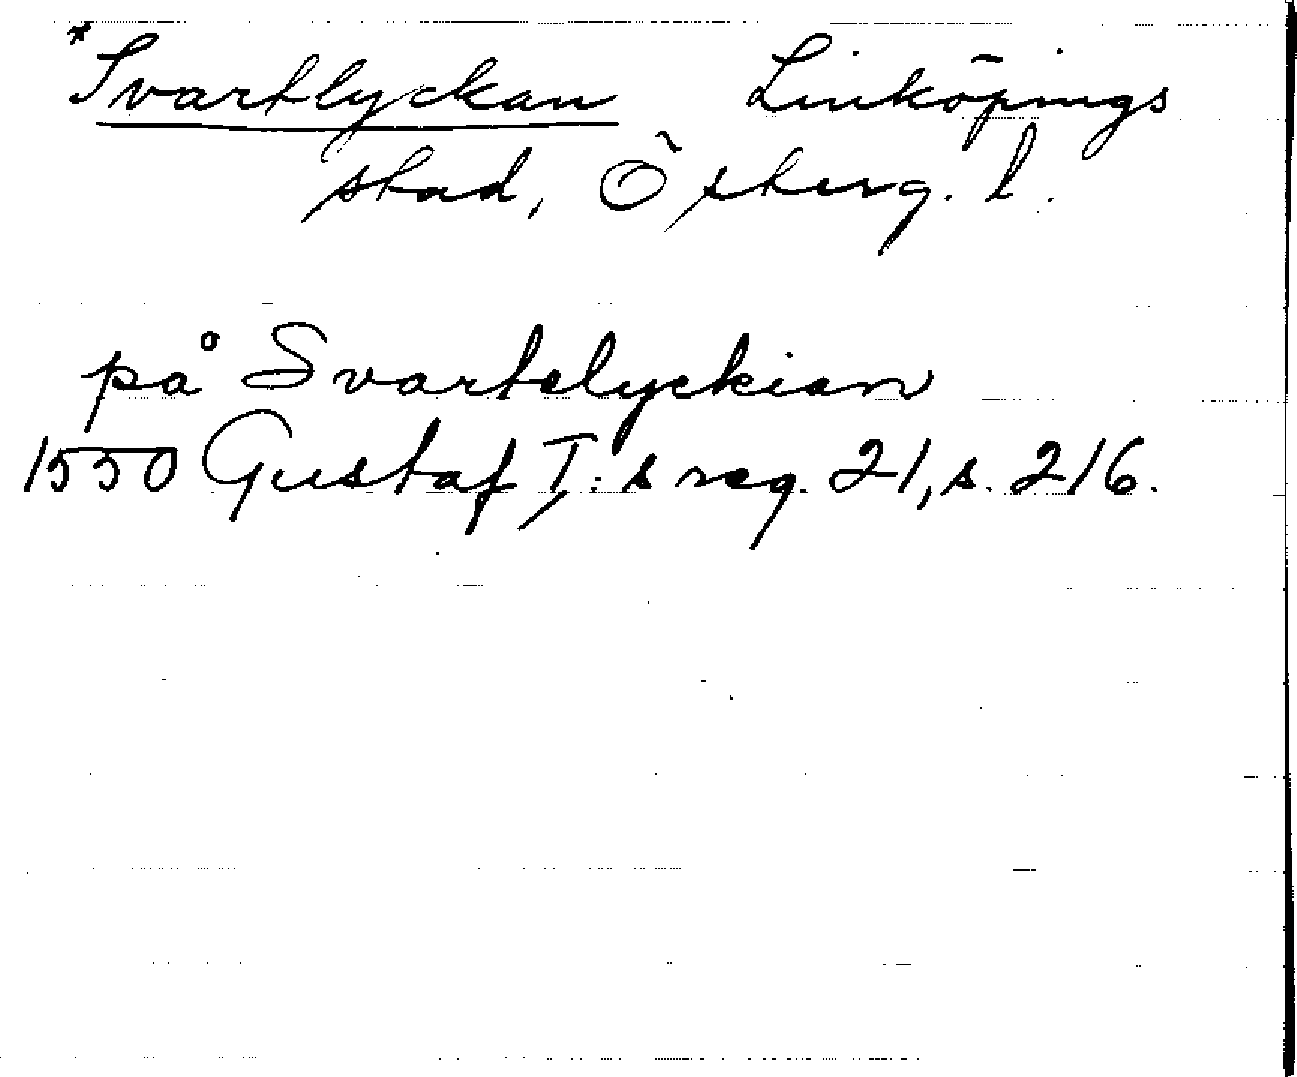 *Svartlyckan Linköpings
stad, Österg. l.
på Svartelyckian
1550 Gustaf I:s reg. 21, s. 216.